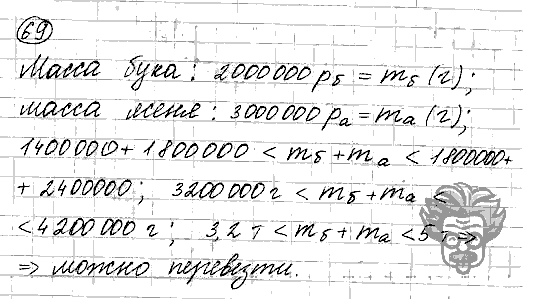 69
Масса бука: 2000000 ρб = mб (г);
масса ясеня: 3000000 ρа = mа (г);
1400000 + 1800000 < mб + mа < 1800000 +
+ 2400000; 3200000 г < mб + mа <
< 4200000 г; 3,2 т < mб + mа < 5 т ⇒
⇒ можно перевезти.